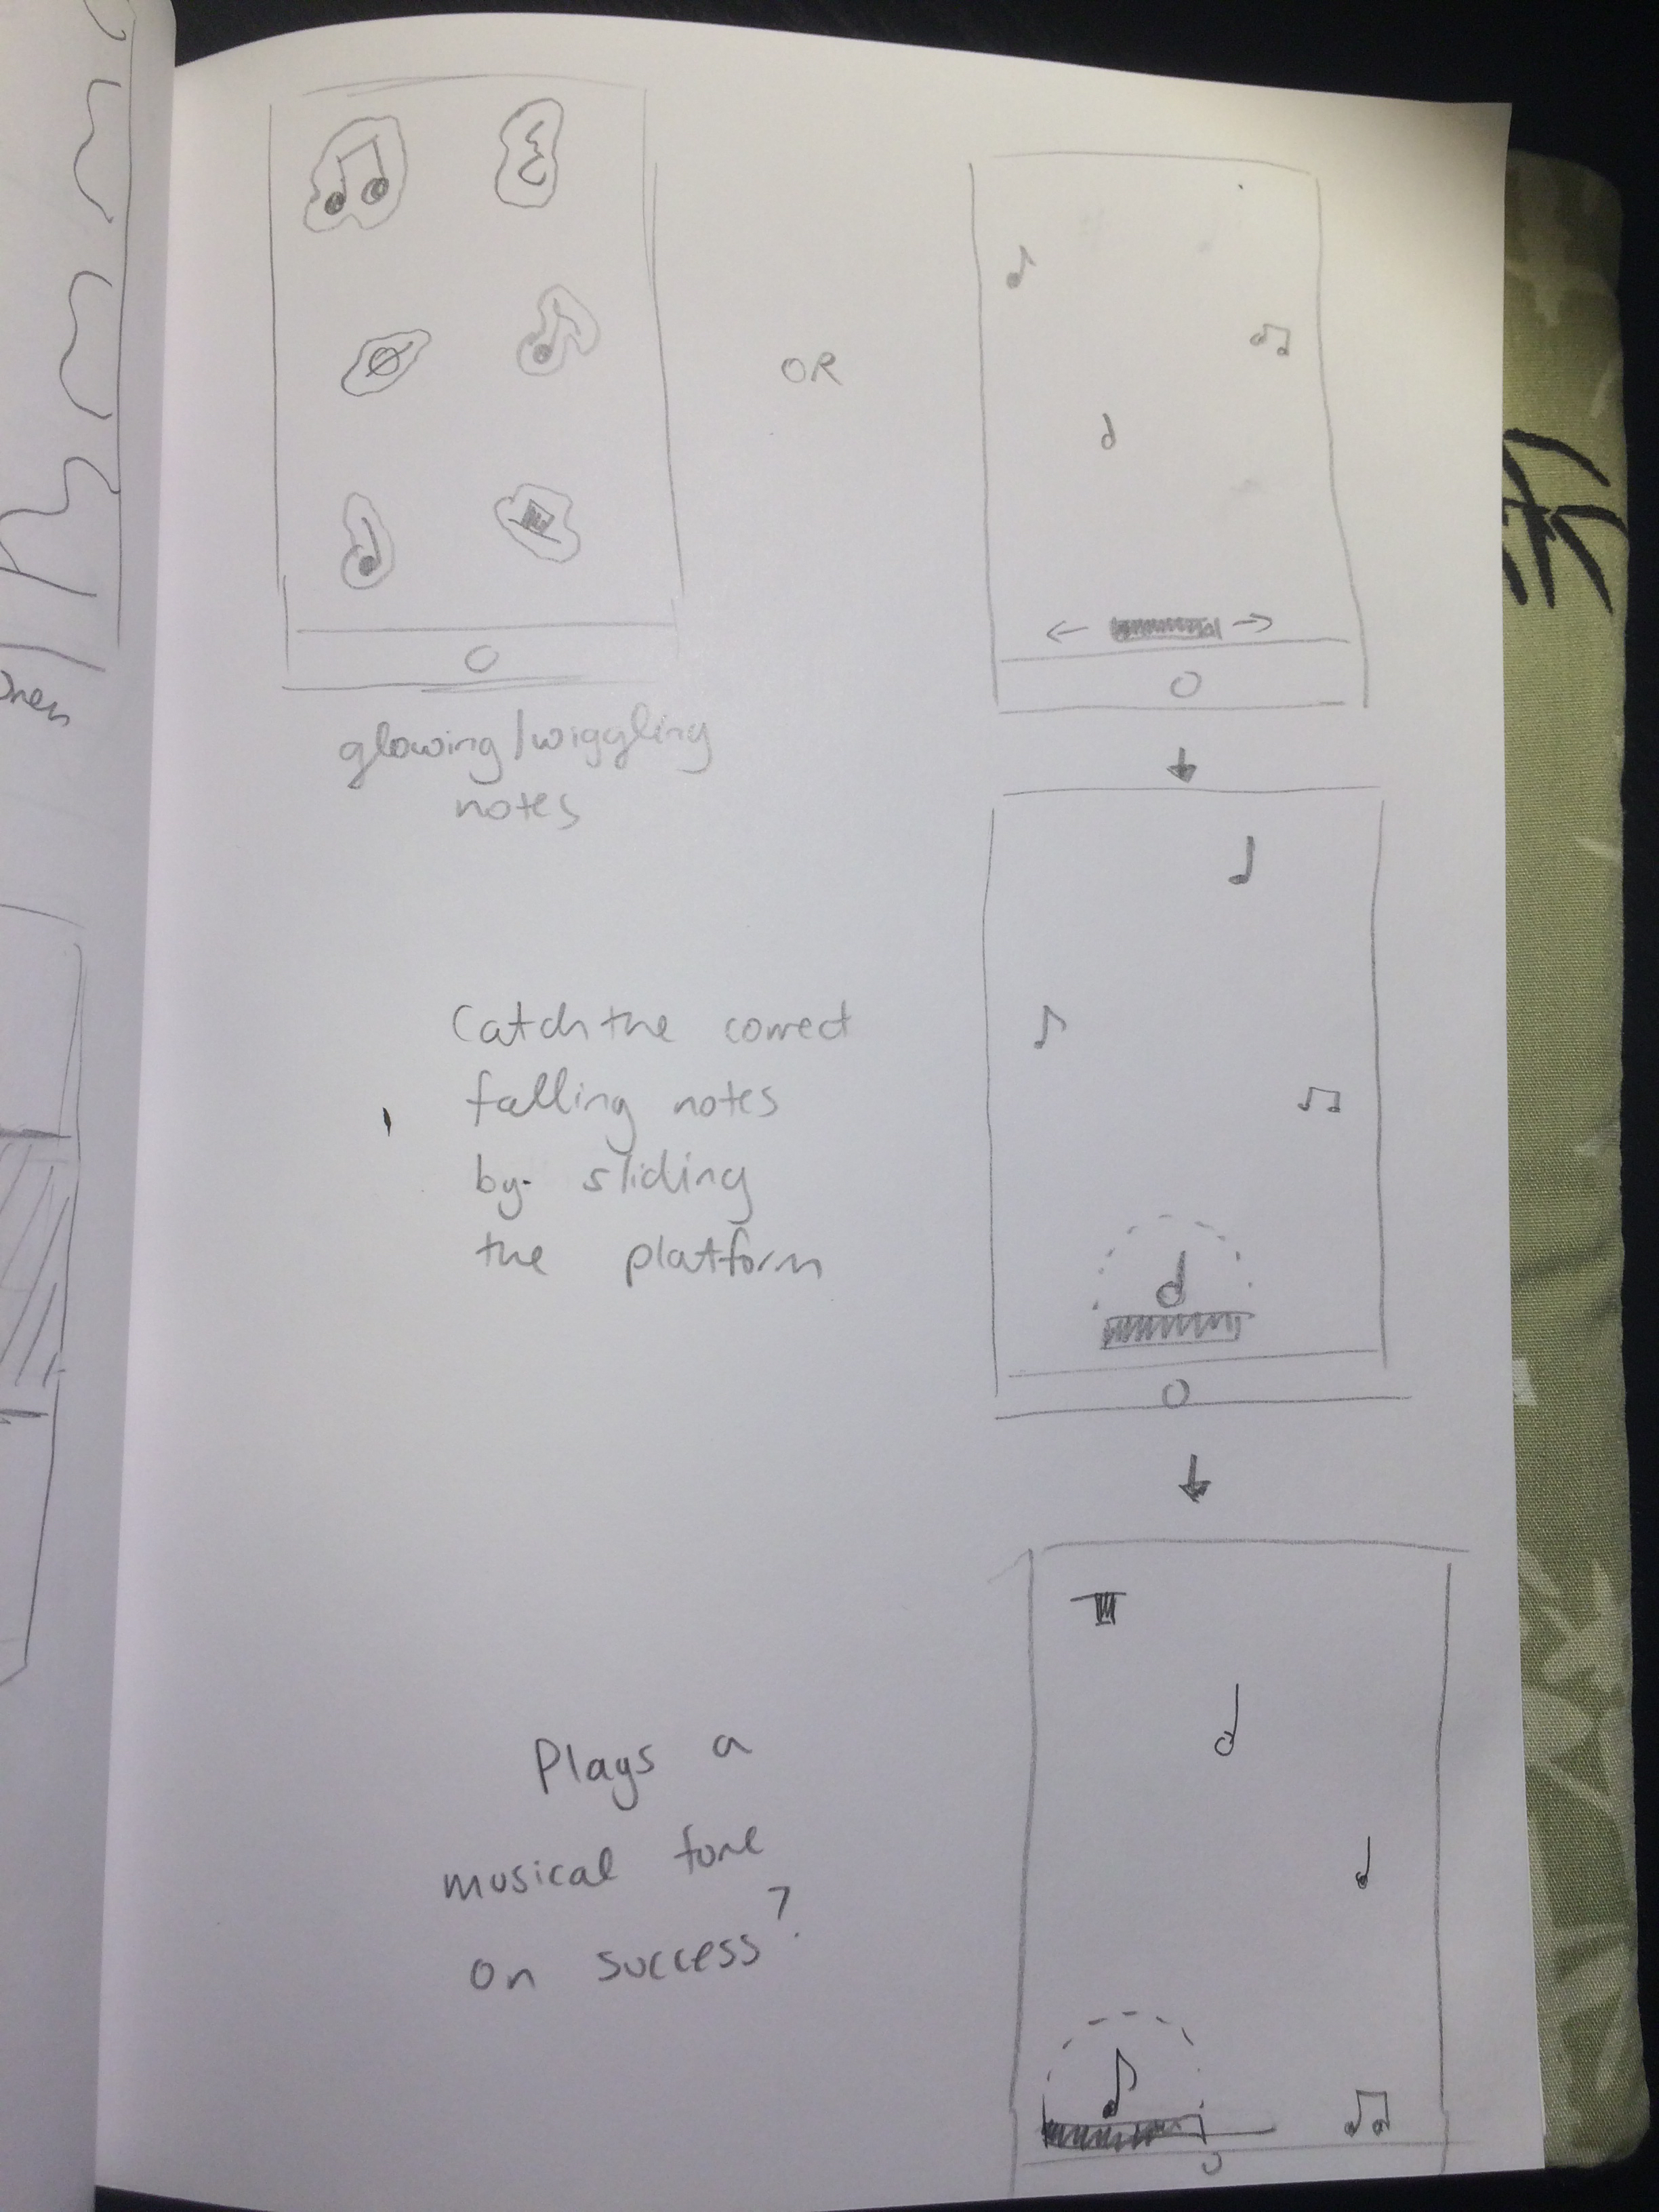 OR
glowing/wiggling
notes
Catch the correct
falling notes
by sliding
the platform
Plays a
musical tone
on success?